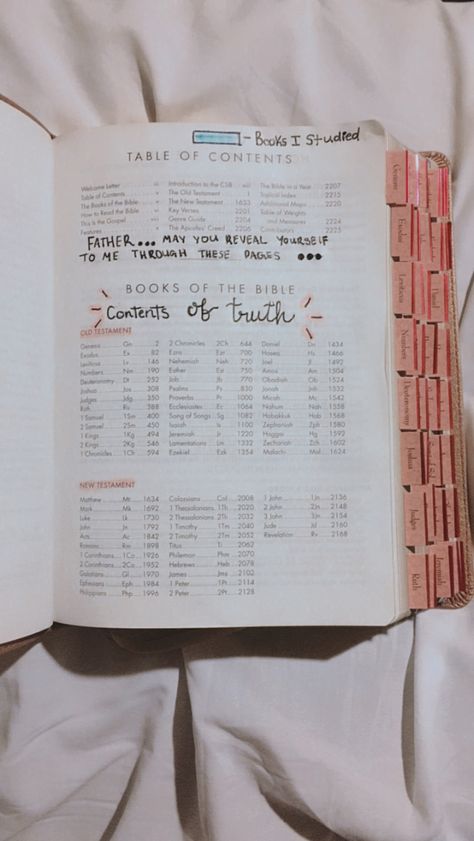 - Books I Studied
TABLE OF CONTENTS
Welcome Letter
Introduction to the CSB
The Bible in a Year 2207
Table of Contents
The Old Testament 1
Topical Index 2215
The Books of the Bible
The New Testament 1633
Additional Maps 2220
How to Read the Bible
Key Verses 2201
Table of Weights
This Is the Gospel
Genre Guide 2204
and Measures 2224
Features
The Apostles' Creed 2206
Contributors 2225
FATHER... MAY YOU REVEAL YOURSELF
TO ME THROUGH THESE PAGES ...
BOOKS OF THE BIBLE
Contents of truth
OLD TESTAMENT
Genesis Gn 2
Exodus Ex 82
Leviticus Lv 146
Numbers Nm 190
Deuteronomy Dt 252
Joshua Jos 308
Judges Jdg 350
Ruth Ru 388
1 Samuel 1Sm 400
2 Samuel 2Sm 450
1 Kings 1Kg 494
2 Kings 2Kg 546
1 Chronicles 1Ch 594
2 Chronicles 2Ch 644
Ezra Ezr 700
Nehemiah Neh 720
Esther Est 750
Job Jb 770
Psalms Ps 830
Proverbs Pr 1000
Ecclesiastes Ec 1064
Song of Songs Sg 1082
Isaiah Is 1100
Jeremiah Jr 1220
Lamentations Lm 1332
Ezekiel Ezk 1354
Daniel Dn 1434
Hosea Hs 1466
Joel Jl 1492
Amos Am 1504
Obadiah Ob 1524
Jonah Jnh 1532
Micah Mc 1542
Nahum Nah 1558
Habakkuk Hab 1568
Zephaniah Zph 1580
Haggai Hg 1592
Zechariah Zch 1602
Malachi Mal 1624
NEW TESTAMENT
Matthew Mt 1634
Mark Mk 1692
Luke Lk 1730
John Jn 1792
Acts Ac 1842
Romans Rm 1898
1 Corinthians 1Co 1926
2 Corinthians 2Co 1952
Galatians Gl 1970
Ephesians Eph 1984
Philippians Php 1996
Colossians Col 2008
1 Thessalonians 1Th 2020
2 Thessalonians 2Th 2032
1 Timothy 1Tm 2040
2 Timothy 2Tm 2052
Titus Ti 2062
Philemon Phm 2070
Hebrews Heb 2078
James Jms 2102
1 Peter 1Pt 2114
2 Peter 2Pt 2128
1 John 1Jn 2136
2 John 2Jn 2148
3 John 3Jn 2154
Jude Jd 2160
Revelation Rv 2168
Genesis
Exodus
Leviticus
Numbers
Deuteronomy
Joshua
Judges
Ruth
Daniel
Jeremiah